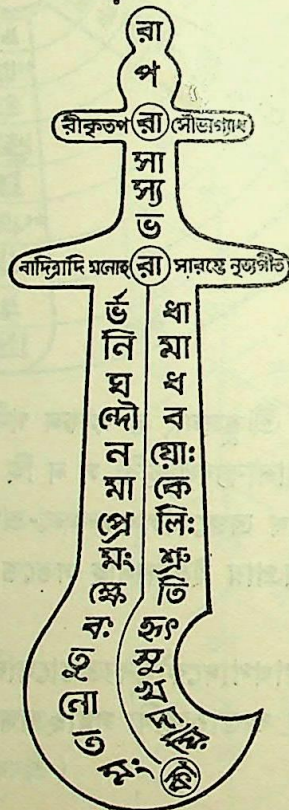 রা
প
রীকৃতপ রা সৌভাগ্যাধ
সা
স্য
ভ
বাদিত্রাদি মনোহ রা সারম্ভে নৃত্যগীত
র্ভ নি ঘ ন্দৌ ন মা প্রে মং ক্ষে বঃ তু নো ত মং
ধা মা ধ ব য়োঃ কে লিঃ শ্রু তি হৃৎ সু খ দা য়ি
কা